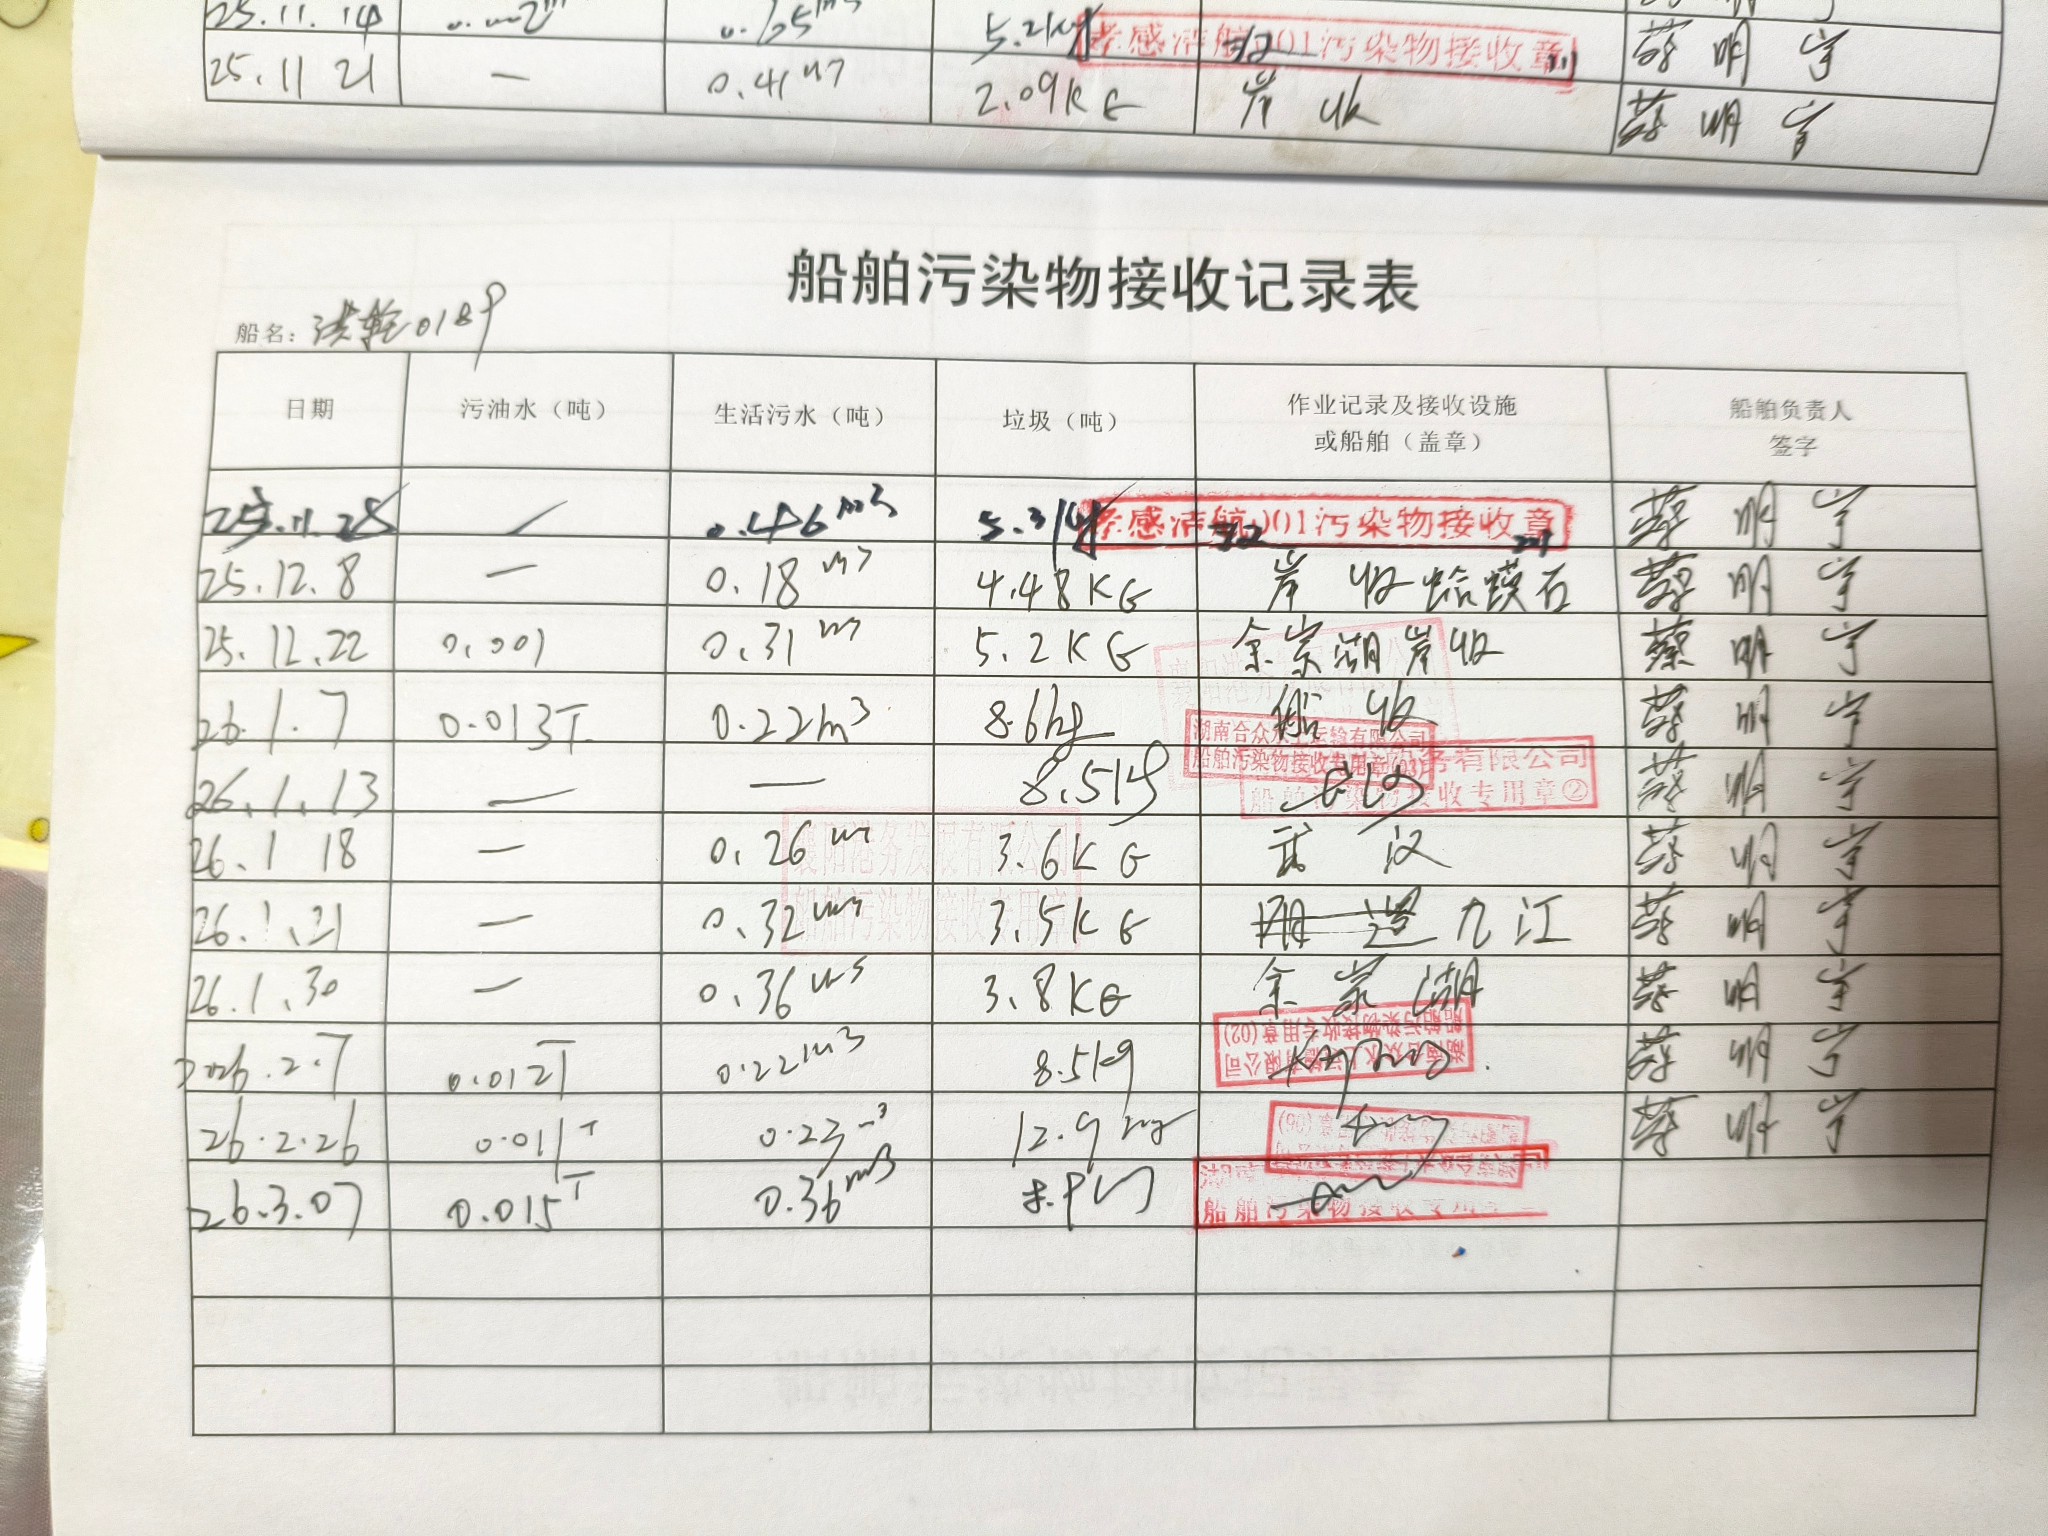 25.11.14 5.2kg 孝感洁航001污染物接收章 蔡明宇
25.11 21 — 0.41m³ 2.09KG 岸收 蔡明宇
船舶污染物接收记录表
船名: 0189
日期 污油水（吨） 生活污水（吨） 垃圾（吨） 作业记录及接收设施或船舶（盖章） 船舶负责人签字
25.11.28 — 0.486m³ 5.3kg 孝感洁航001污染物接收章 蔡明宇
25.12.8 — 0.18m³ 4.48KG 岸收蛤蟆石 蔡明宇
25.12.22 0.001 0.31m³ 5.2KG 余家湖岸收 蔡明宇
26.1.7 0.013T 0.22m³ 8.6kg 船收 蔡明宇
湖南合众水上运输有限公司
船舶污染物接收专用章(03)
26.1.13 — — 8.5kg 蔡明宇
务有限公司
船舶污染物接收专用章②
26.1 18 — 0.26m³ 3.6KG 武汉 蔡明宇
襄阳港务发展有限公司
船舶污染物接收专用章
26.1.21 — 0.32m³ 3.5KG 九江 蔡明宇
26.1.30 — 0.36m³ 3.8KG 余家湖 蔡明宇
船舶污染物接收专用章(02)
2026.2.7 0.012T 0.22m³ 8.5kg 蔡明宇
26.2.26 0.011T 0.23m³ 12.9kg 蔡明宇
26.3.07 0.015T 0.36m³
船舶污染物接收专用